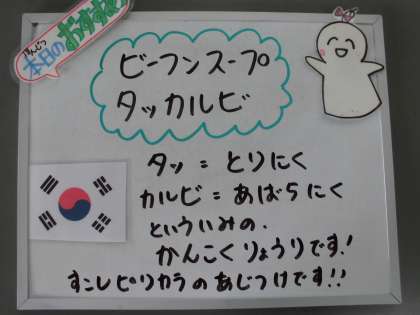 ほんじつ
本日のおすすめ
ビーフンスープ
タッカルビ
タッ = とりにく
カルビ = あばらにく
といういみの、
かんこくりょうりです!
すこしピリカラのあじつけです!!